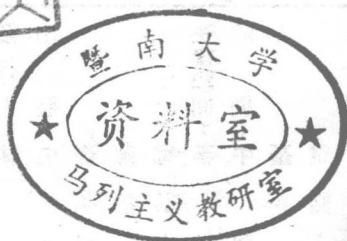 暨南大学
资料室
马列主义教研室